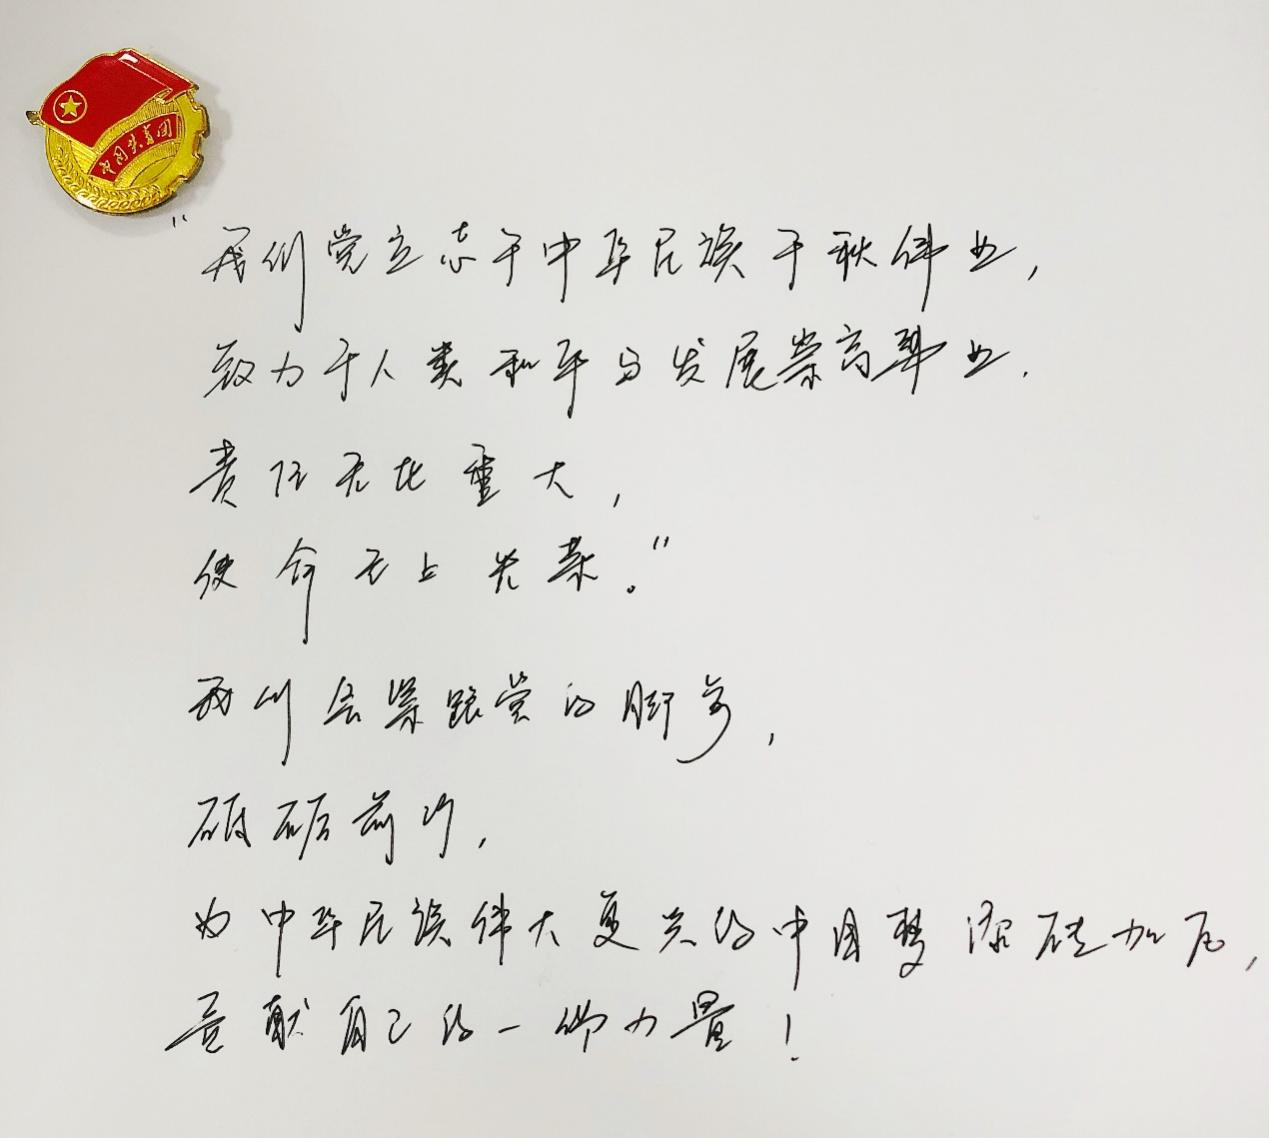 中国共青团
“我们党立志于中华民族千秋伟业,
致力于人类和平与发展崇高事业.
责任无比重大,
使命无上光荣。”
我们会紧跟党的脚步,
砥砺前行,
为中华民族伟大复兴的中国梦添砖加瓦,
贡献自己的一份力量!